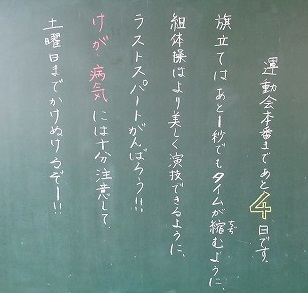 運動会本番まであと4日です。
旗立てはあと1秒でもタイムが縮むように、
組体操はより美しく演技できるように、
ラストスパートがんばろう!!
けが 病気には十分注意して、
土曜日までかけぬけるぞー!!